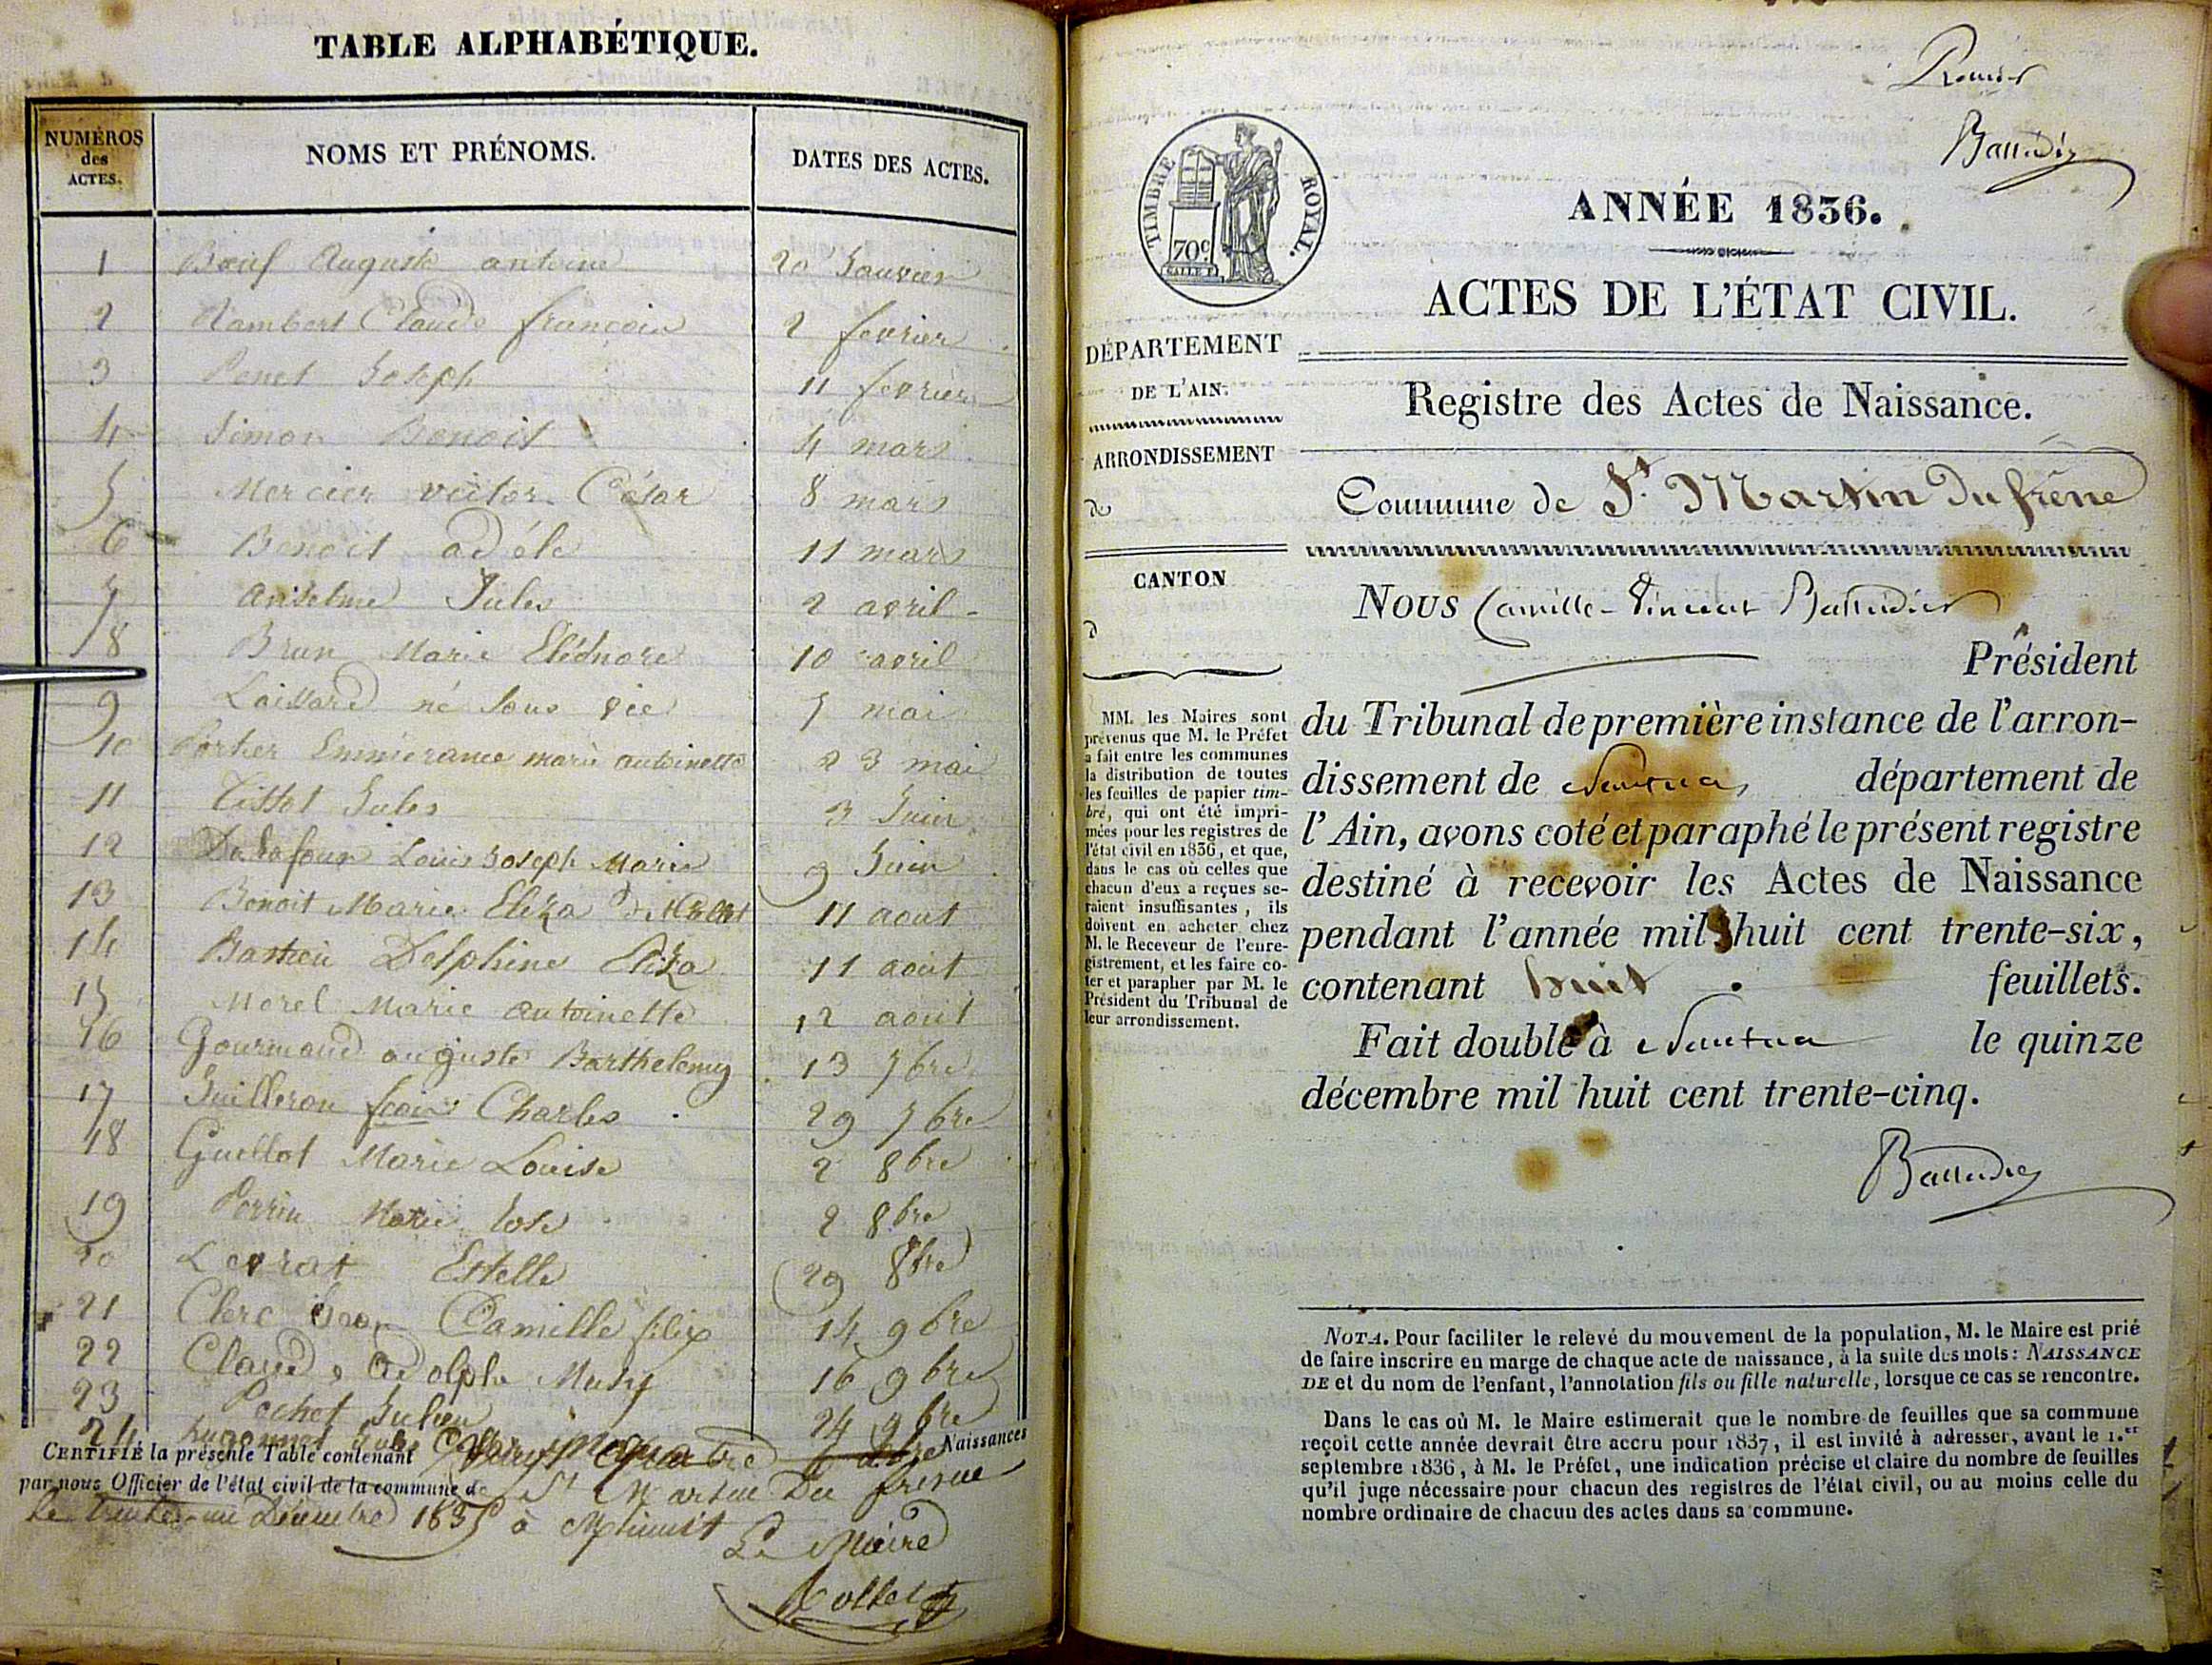 TABLE ALPHABÉTIQUE.
NUMÉROS
des
ACTES.
NOMS ET PRÉNOMS.
DATES DES ACTES.
1 Bœuf Auguste antoine 20 Janvier
2 Rambert Claude françois 2 fevrier
3 Penet Joseph 11 fevrier
4 Simon Benoit 4 mars
5 Mercier victor César 8 mars
6 Benoit adéle 11 mars
7 anselme Jules 2 avril
8 Brun Marie Eléonore 10 avril
9 Laissard né sous vie 5 mai
10 Portier Emmerance marie antoinette 23 mai
11 Tissot Jules 3 Juin
12 Louis Joseph Marie 9 Juin
13 Benoit Marie Eliza 11 aout
14 Bastien Delphine Eliza 11 aout
15 Morel Marie antoinette 12 aout
16 Gourmand auguste Barthelemy 13 7bre
17 Juilleron fçois Charles 29 7bre
18 Guillot Marie Louise 2 8bre
19 Perrin Marie 2 8bre
20 Levrat Estelle 29 8bre
21 Clerc Camille felix 14 9bre
22 Claude adolphe 16 9bre
23 Pochet Julien 24 9bre
24
CERTIFIÉ la présente Table contenant Vingt quatre Naissances
par nous Officier de l'état civil de la commune de St Martin Du fresne
le trente-un Décembre 1835 à Minuit
Le Maire
TIMBRE ROYAL.
70c
ANNÉE 1836.
ACTES DE L'ÉTAT CIVIL.
DÉPARTEMENT
DE L'AIN.
ARRONDISSEMENT
de
CANTON
d
Registre des Actes de Naissance.
Commune de St. Martin Du frêne
NOUS Camille-Vincent
Président
du Tribunal de première instance de l'arron-
dissement de Nantua, département de
l'Ain, avons coté et paraphé le présent registre
destiné à recevoir les Actes de Naissance
pendant l'année mil huit cent trente-six,
contenant huit feuillets.
Fait double à Nantua le quinze
décembre mil huit cent trente-cinq.
MM. les Maires sont
prévenus que M. le Préfet
a fait entre les communes
la distribution de toutes
les feuilles de papier tim-
bré, qui ont été impri-
mées pour les registres de
l'état civil en 1836, et que,
dans le cas où celles que
chacun d'eux a reçues se-
raient insuffisantes, ils
doivent en acheter chez
M. le Receveur de l'enre-
gistrement, et les faire co-
ter et parapher par M. le
Président du Tribunal de
leur arrondissement.
NOTA. Pour faciliter le relevé du mouvement de la population, M. le Maire est prié
de faire inscrire en marge de chaque acte de naissance, à la suite des mots: NAISSANCE
DE et du nom de l'enfant, l'annotation fils ou fille naturelle, lorsque ce cas se rencontre.
Dans le cas où M. le Maire estimerait que le nombre de feuilles que sa commune
reçoit cette année devrait être accru pour 1837, il est invité à adresser, avant le 1.er
septembre 1836, à M. le Préfet, une indication précise et claire du nombre de feuilles
qu'il juge nécessaire pour chacun des registres de l'état civil, ou au moins celle du
nombre ordinaire de chacun des actes dans sa commune.